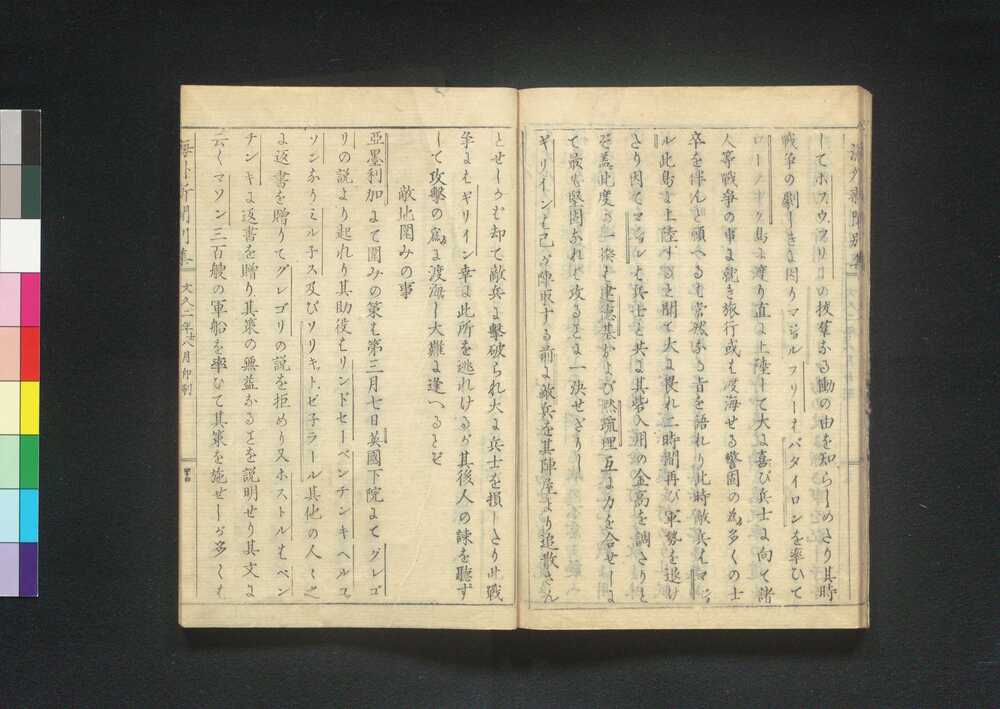 してホスウフリーの抜群なる働の由を知らしめたり其時
戦争の劇しきに因りマジル フリーはバタイロンを率ひて
ローノキク島に渡り直に上陸して大に喜び兵士に向て諸
人等戦争の事に就き旅行或は渡海せる警固の為多くの士
卒を伴んと願へるも当然なる旨を語れり此時敵兵はマジ
ル此島に上陸すると聞て大に畏れ二時間再び軍勢を退け
たり因てマジルは兵士と共に其砦入用の金高を調たりと
ぞ蓋此度の
て最も堅固なれば攻ることに一決せざりし
ギリインも己が陣取する前に敵兵を其陣屋より追散さん
とせしかど却て敵兵に撃破られ大に兵士を損したり此戦
争にもギリイン幸に此所を逃れけるが其後人の諫を聴ず
して攻撃の為に渡海し大難に逢へるとぞ
敵地囲みの事
亜墨利加にて囲みの策は第三月七日英國下院にてグレゴ
リの説より起れり其助役はリンドセーベンチンキ ヘルコ
ソンなりミル子ス及びソリキトトゼ子ラール其他の人々之
に返書を贈りてグレゴリの説を拒めり又ホストルはベン
チンキに返書を贈り其策の無益なることを説明せり其文に
云くマソン三百艘の軍船を率ひて其策を施せしが多くは
海外新聞別集 文久二年壬八月印刻